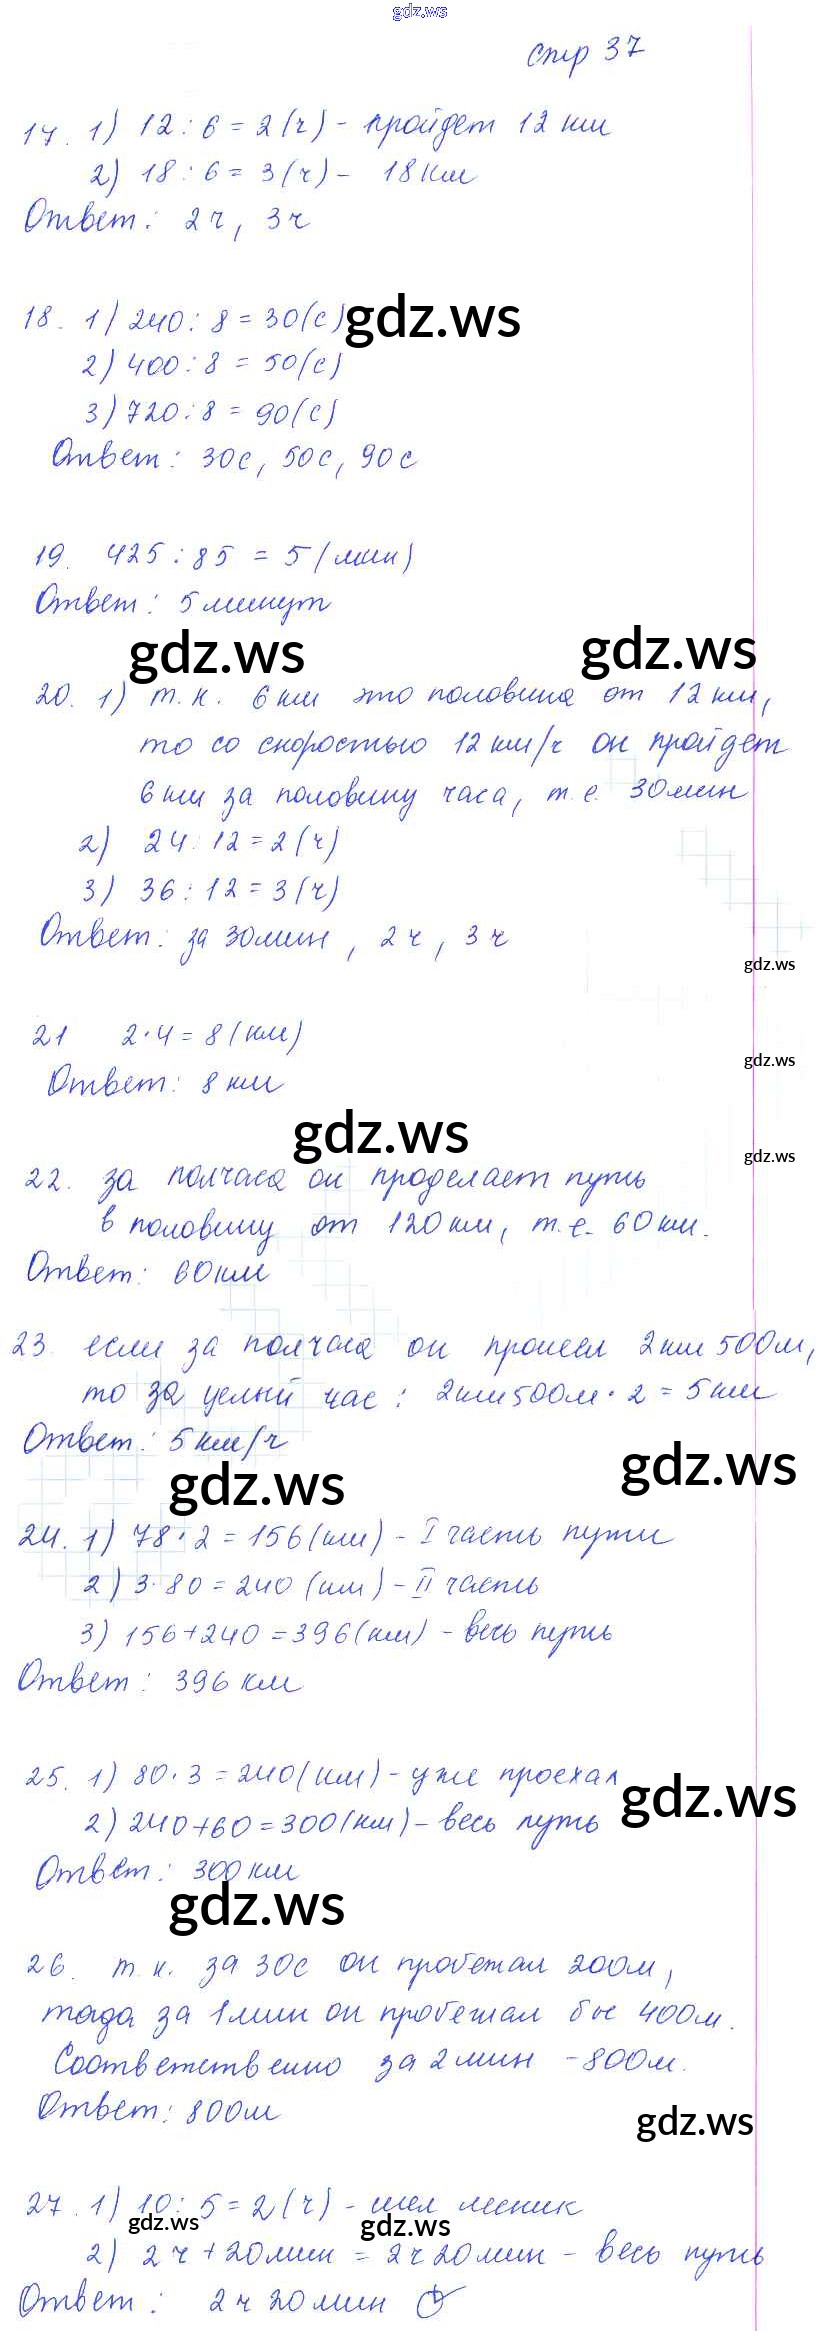 gdz.ws
стр 37
17. 1) 12 : 6 = 2 (ч) - пройдет 12 км
2) 18 : 6 = 3 (ч) - 18 км
Ответ: 2 ч, 3 ч
18. 1) 240 : 8 = 30 (с) gdz.ws
2) 400 : 8 = 50 (с)
3) 720 : 8 = 90 (с)
Ответ: 30 с, 50 с, 90 с
19. 425 : 85 = 5 (мин)
Ответ: 5 минут
gdz.ws gdz.ws
20. 1) т.к. 6 км это половина от 12 км,
то со скоростью 12 км/ч он пройдет
6 км за половину часа, т.е. 30 мин
2) 24 : 12 = 2 (ч)
3) 36 : 12 = 3 (ч)
Ответ: за 30 мин, 2 ч, 3 ч
gdz.ws
21 2 · 4 = 8 (км)
gdz.ws
Ответ: 8 км
gdz.ws
gdz.ws
22. за полчаса он проделает путь
в половину от 120 км, т.е. 60 км.
Ответ: 60 км
23. если за полчаса он прошел 2 км 500 м,
то за целый час: 2 км 500 м · 2 = 5 км
Ответ: 5 км/ч
gdz.ws gdz.ws
24. 1) 78 · 2 = 156 (км) - I часть пути
2) 3 · 80 = 240 (км) - II часть
3) 156 + 240 = 396 (км) - весь путь
Ответ: 396 км
25. 1) 80 · 3 = 240 (км) - уже проехал
gdz.ws
2) 240 + 60 = 300 (км) - весь путь
Ответ: 300 км
gdz.ws
26. т.к. за 30 с он пробежал 200 м,
тогда за 1 мин он пробежал бы 400 м.
Соответственно за 2 мин - 800 м.
Ответ: 800 м
gdz.ws
27. 1) 10 : 5 = 2 (ч) - шел лесник
gdz.ws gdz.ws
2) 2 ч + 20 мин = 2 ч 20 мин - весь путь
Ответ: 2 ч 20 мин